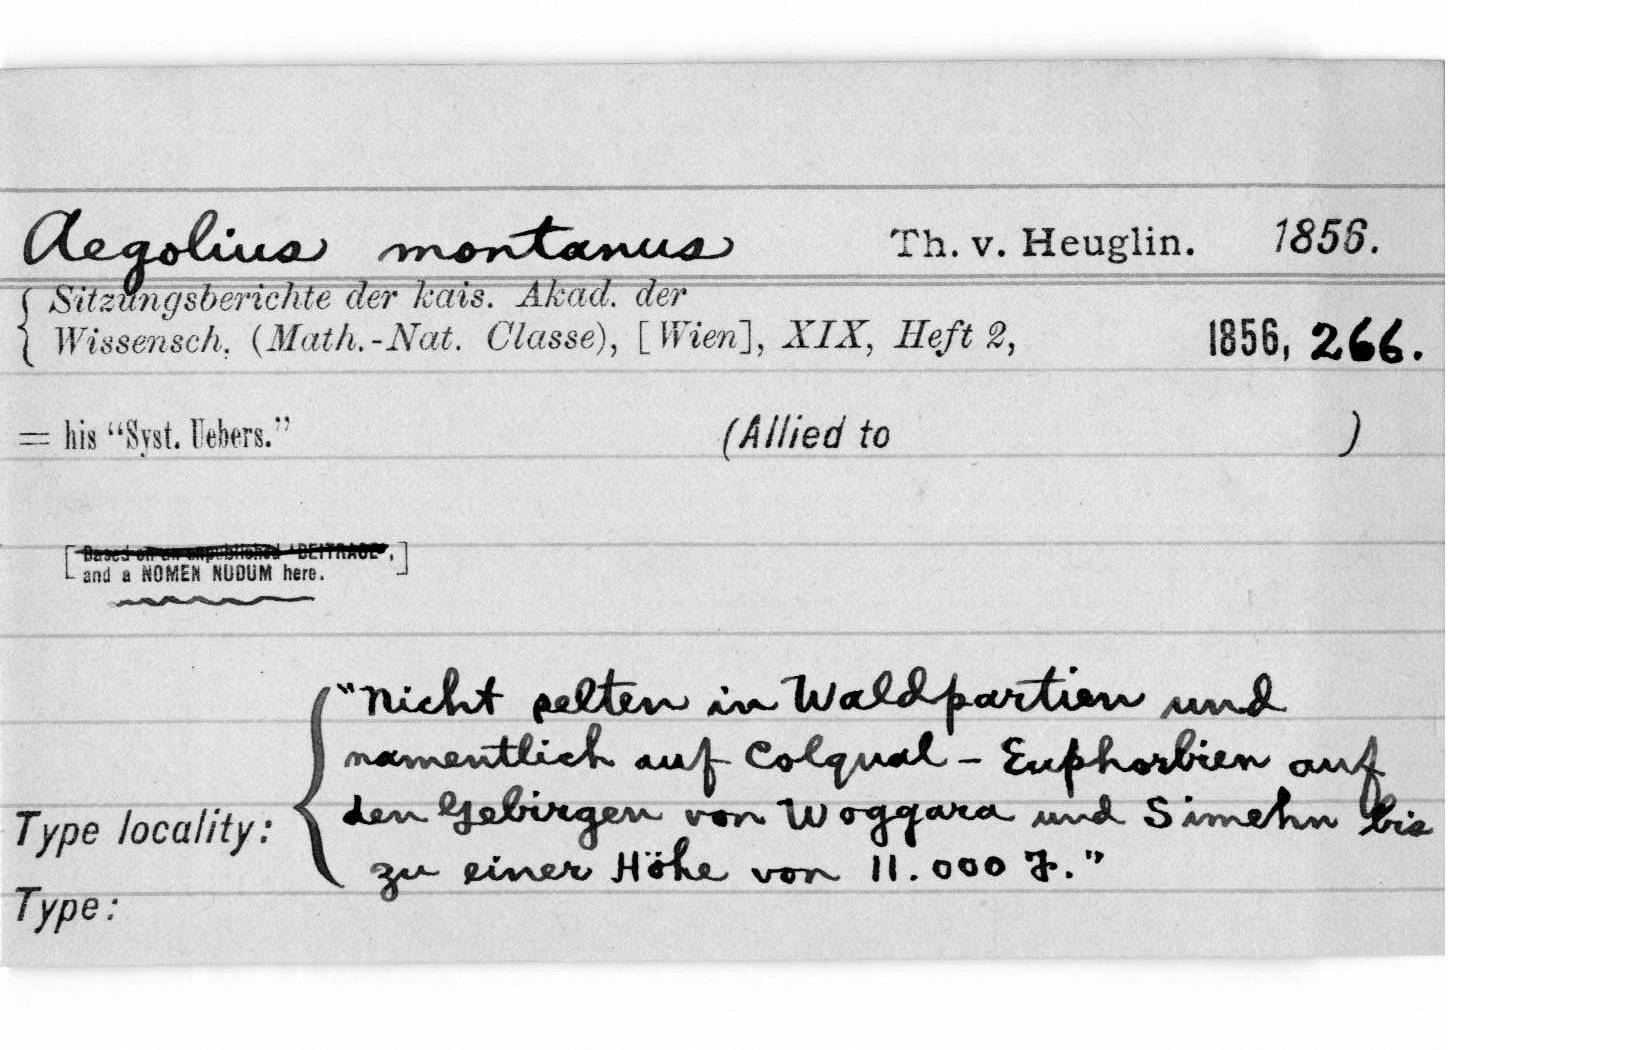 Aegolius montanus Th. v. Heuglin. 1856.
Sitzungsberichte der kais. Akad. der
Wissensch. (Math.-Nat. Classe), [Wien], XIX, Heft 2, 1856, 266.
= his “Syst. Uebers.” (Allied to )
[Based on an unpublished ‘BEITRAGE’,]
and a NOMEN NUDUM here.
“Nicht selten in Waldpartien und
namentlich auf Colqual - Euphorbien auf
den Gebirgen von Woggara und Simehn bis
Type locality: zu einer Höhe von 11.000 F.”
Type: